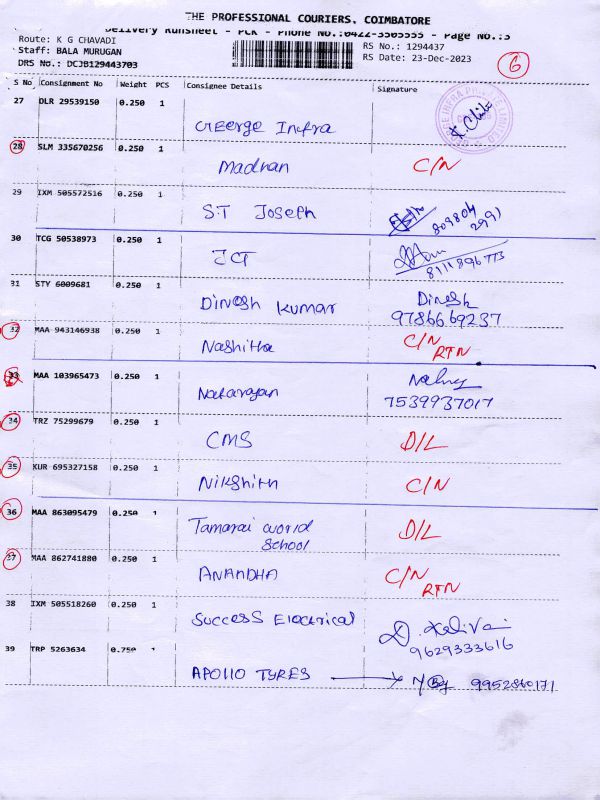 THE PROFESSIONAL COURIERS, COIMBATORE
Delivery Runsheet - PCK - Phone No.:0422-3505555 - Page No.:3
Route: K G CHAVADI
Staff: BALA MURUGAN
DRS No.: DCJB129443703
RS No.: 1294437
RS Date: 23-Dec-2023
6
S No Consignment No Weight PCS Consignee Details Signature
27 DLR 29539150 0.250 1
George Infra
28 SLM 335670256 0.250 1
Madhan C/N
29 IXM 505572516 0.250 1
S.T Joseph 809804
2991
30 TCG 50538973 0.250 1
ICT
8111896773
31 STY 6009681 0.250 1
Dinesh Kumar Dinesh
9786669237
32 MAA 943146938 0.250 1
Nashitha C/N
RTN
33 MAA 103965473 0.250 1
Natarajan
7539937017
34 TRZ 75299679 0.250 1
CMS D/L
35 KUR 695327158 0.250 1
Nikshith C/N
36 MAA 863095479 0.250 1
Tamarai world D/L
School
37 MAA 862741880 0.250 1
ANANDHA C/N
RTN
38 IXM 505518260 0.250 1
Success Electrical
9629333616
39 TRP 5263634 0.750 1
APOLLO TYRES 9952860171